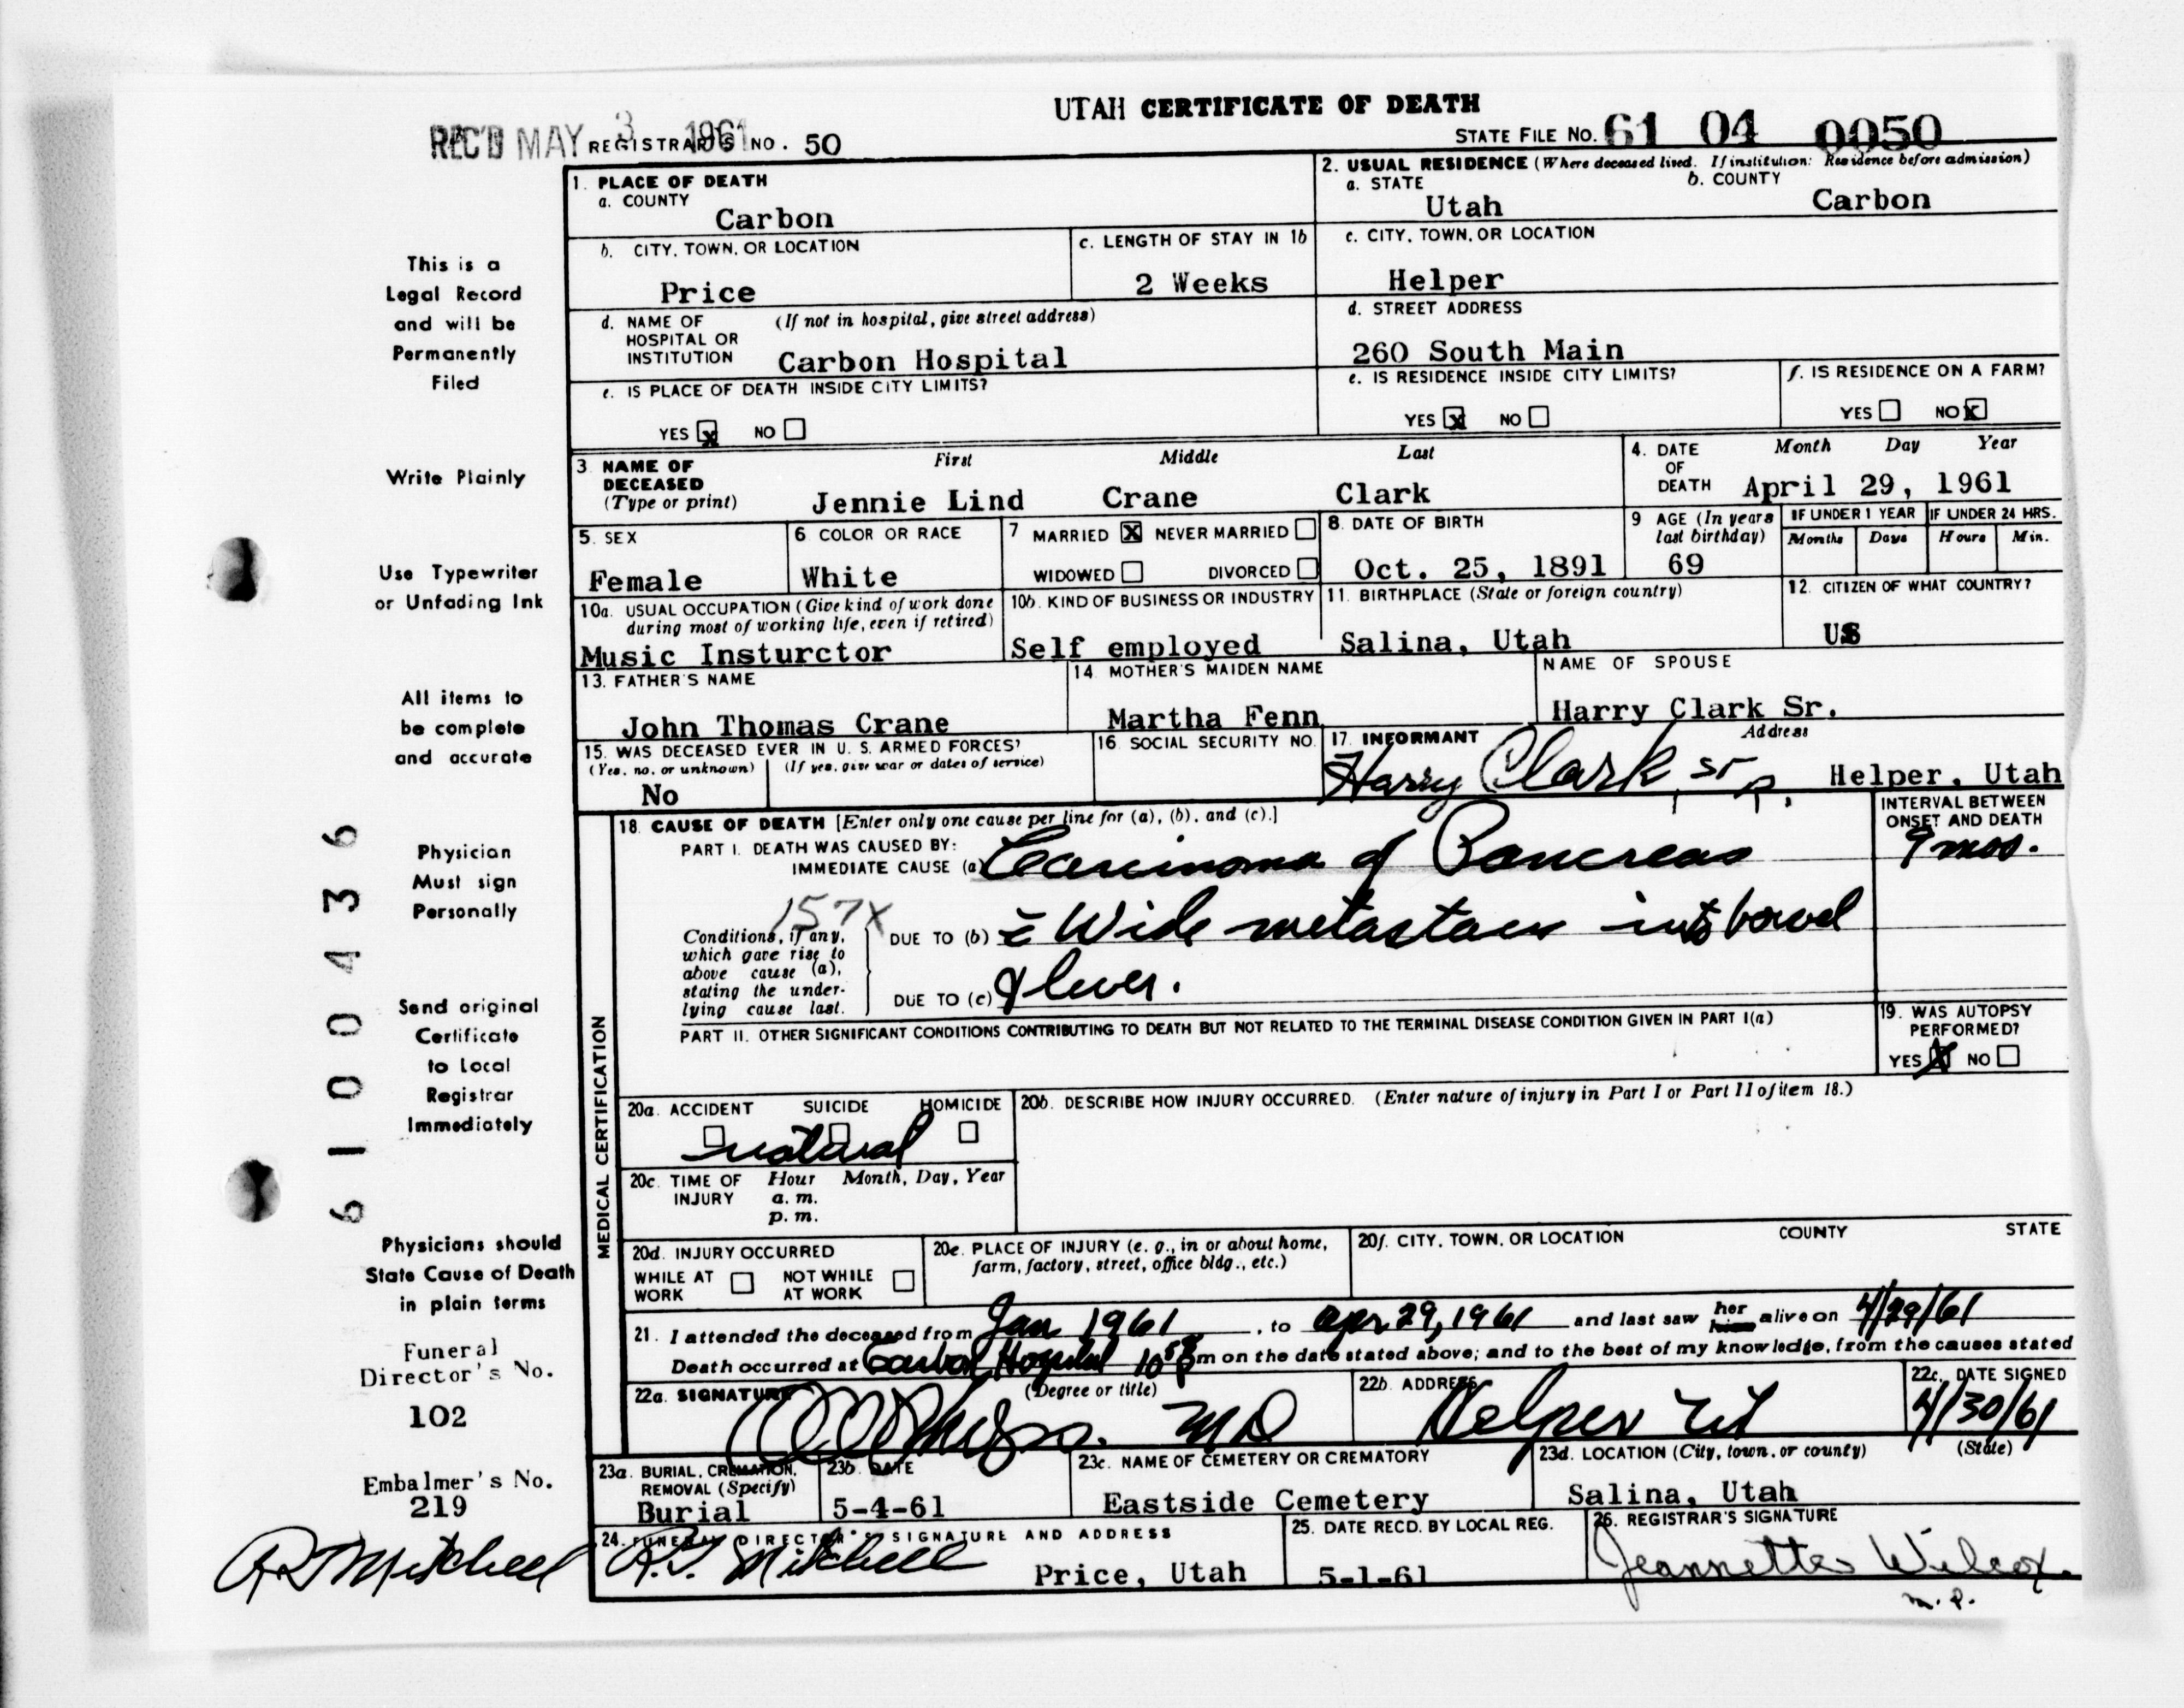 UTAH CERTIFICATE OF DEATH
REC'D MAY 3 1961 REGISTRAR'S NO. 50
STATE FILE NO. 61 04 0050
1. PLACE OF DEATH
a. COUNTY
Carbon
2. USUAL RESIDENCE (Where deceased lived. If institution: Residence before admission)
a. STATE b. COUNTY
Utah Carbon
b. CITY, TOWN, OR LOCATION
Price
c. LENGTH OF STAY IN 1b
2 Weeks
c. CITY, TOWN, OR LOCATION
Helper
d. NAME OF HOSPITAL OR INSTITUTION (If not in hospital, give street address)
Carbon Hospital
d. STREET ADDRESS
260 South Main
e. IS PLACE OF DEATH INSIDE CITY LIMITS?
YES x NO
e. IS RESIDENCE INSIDE CITY LIMITS?
YES x NO
f. IS RESIDENCE ON A FARM?
YES NO x
3 NAME OF DECEASED (Type or print)
First Middle Last
Jennie Lind Crane Clark
4. DATE OF DEATH
Month Day Year
April 29, 1961
5. SEX
Female
6 COLOR OR RACE
White
7 MARRIED X NEVER MARRIED
WIDOWED DIVORCED
8. DATE OF BIRTH
Oct. 25, 1891
9 AGE (In years last birthday)
69
IF UNDER 1 YEAR
Months Days
IF UNDER 24 HRS.
Hours Min.
10a. USUAL OCCUPATION (Give kind of work done during most of working life, even if retired)
Music Insturctor
10b. KIND OF BUSINESS OR INDUSTRY
Self employed
11. BIRTHPLACE (State or foreign country)
Salina, Utah
12. CITIZEN OF WHAT COUNTRY?
US
13. FATHER'S NAME
John Thomas Crane
14 MOTHER'S MAIDEN NAME
Martha Fenn
NAME OF SPOUSE
Harry Clark Sr.
15. WAS DECEASED EVER IN U. S. ARMED FORCES?
(Yes, no, or unknown) (If yes, give war or dates of service)
No
16. SOCIAL SECURITY NO.
17. INFORMANT Address
Harry Clark, Sr. Helper, Utah
MEDICAL CERTIFICATION
18. CAUSE OF DEATH [Enter only one cause per line for (a), (b), and (c).]
INTERVAL BETWEEN ONSET AND DEATH
PART I. DEATH WAS CAUSED BY:
IMMEDIATE CAUSE (a) Carcinoma of Pancreas 9 mos.
157X
Conditions, if any, which gave rise to above cause (a), stating the underlying cause last.
DUE TO (b) c̄ Wide metastases into bowel
DUE TO (c) & liver.
PART II. OTHER SIGNIFICANT CONDITIONS CONTRIBUTING TO DEATH BUT NOT RELATED TO THE TERMINAL DISEASE CONDITION GIVEN IN PART I(a)
19. WAS AUTOPSY PERFORMED?
YES X NO
20a. ACCIDENT SUICIDE HOMICIDE
natural
20b. DESCRIBE HOW INJURY OCCURRED. (Enter nature of injury in Part I or Part II of item 18.)
20c. TIME OF INJURY Hour Month, Day, Year
a. m.
p. m.
20d. INJURY OCCURRED
WHILE AT WORK NOT WHILE AT WORK
20e. PLACE OF INJURY (e. g., in or about home, farm, factory, street, office bldg., etc.)
20f. CITY, TOWN, OR LOCATION COUNTY STATE
21. I attended the deceased from Jan 1961, to Apr 29, 1961 and last saw her him alive on 4/29/61
Death occurred at Carbon Hospital m on the date stated above; and to the best of my knowledge, from the causes stated
22a. SIGNATURE (Degree or title)
MD
22b. ADDRESS
Helper Ut
22c. DATE SIGNED
4/30/61
23a. BURIAL, CREMATION, REMOVAL (Specify)
Burial
23b. DATE
5-4-61
23c. NAME OF CEMETERY OR CREMATORY
Eastside Cemetery
23d. LOCATION (City, town, or county) (State)
Salina, Utah
24. FUNERAL DIRECTOR'S SIGNATURE AND ADDRESS
R.J. Mitchell Price, Utah
25. DATE RECD. BY LOCAL REG.
5-1-61
26. REGISTRAR'S SIGNATURE
Jeannette Wilcox.
m.p.
This is a
Legal Record
and will be
Permanently
Filed
Write Plainly
Use Typewriter
or Unfading Ink
All items to
be complete
and accurate
Physician
Must sign
Personally
Send original
Certificate
to Local
Registrar
Immediately
Physicians should
State Cause of Death
in plain terms
Funeral
Director's No.
102
Embalmer's No.
219
RJ Mitchell
6100436